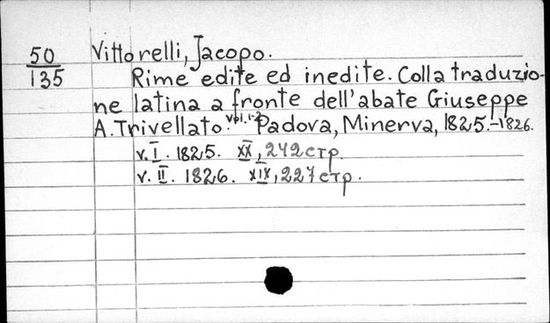 50 Vittorelli, Jacopo.
135 Rime edite ed inedite. Colla traduzio-
ne latina a fronte dell'abate Giuseppe
A. Trivellato. Vol. 1-2 Padova, Minerva, 1825.-1826.
v. I. 1825. XX, 242 стр.
v. II. 1826. XIX, 227 стр.